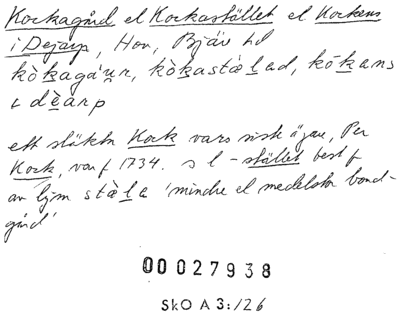 Kockagård el Kockastället el Kockens
i Dejarp, Hov, Bjäre hd
kòkagáu̠r, kòkastæl̠ad, kók̠ans
ɩ dèarp
ett släktn Kock vars sisk ägare, Per
Kock, var f 1734. s l - stället best f
av ljm stàl̠a 'mindre el medelstor bond-
gård'
00027938
SkO A 3:126